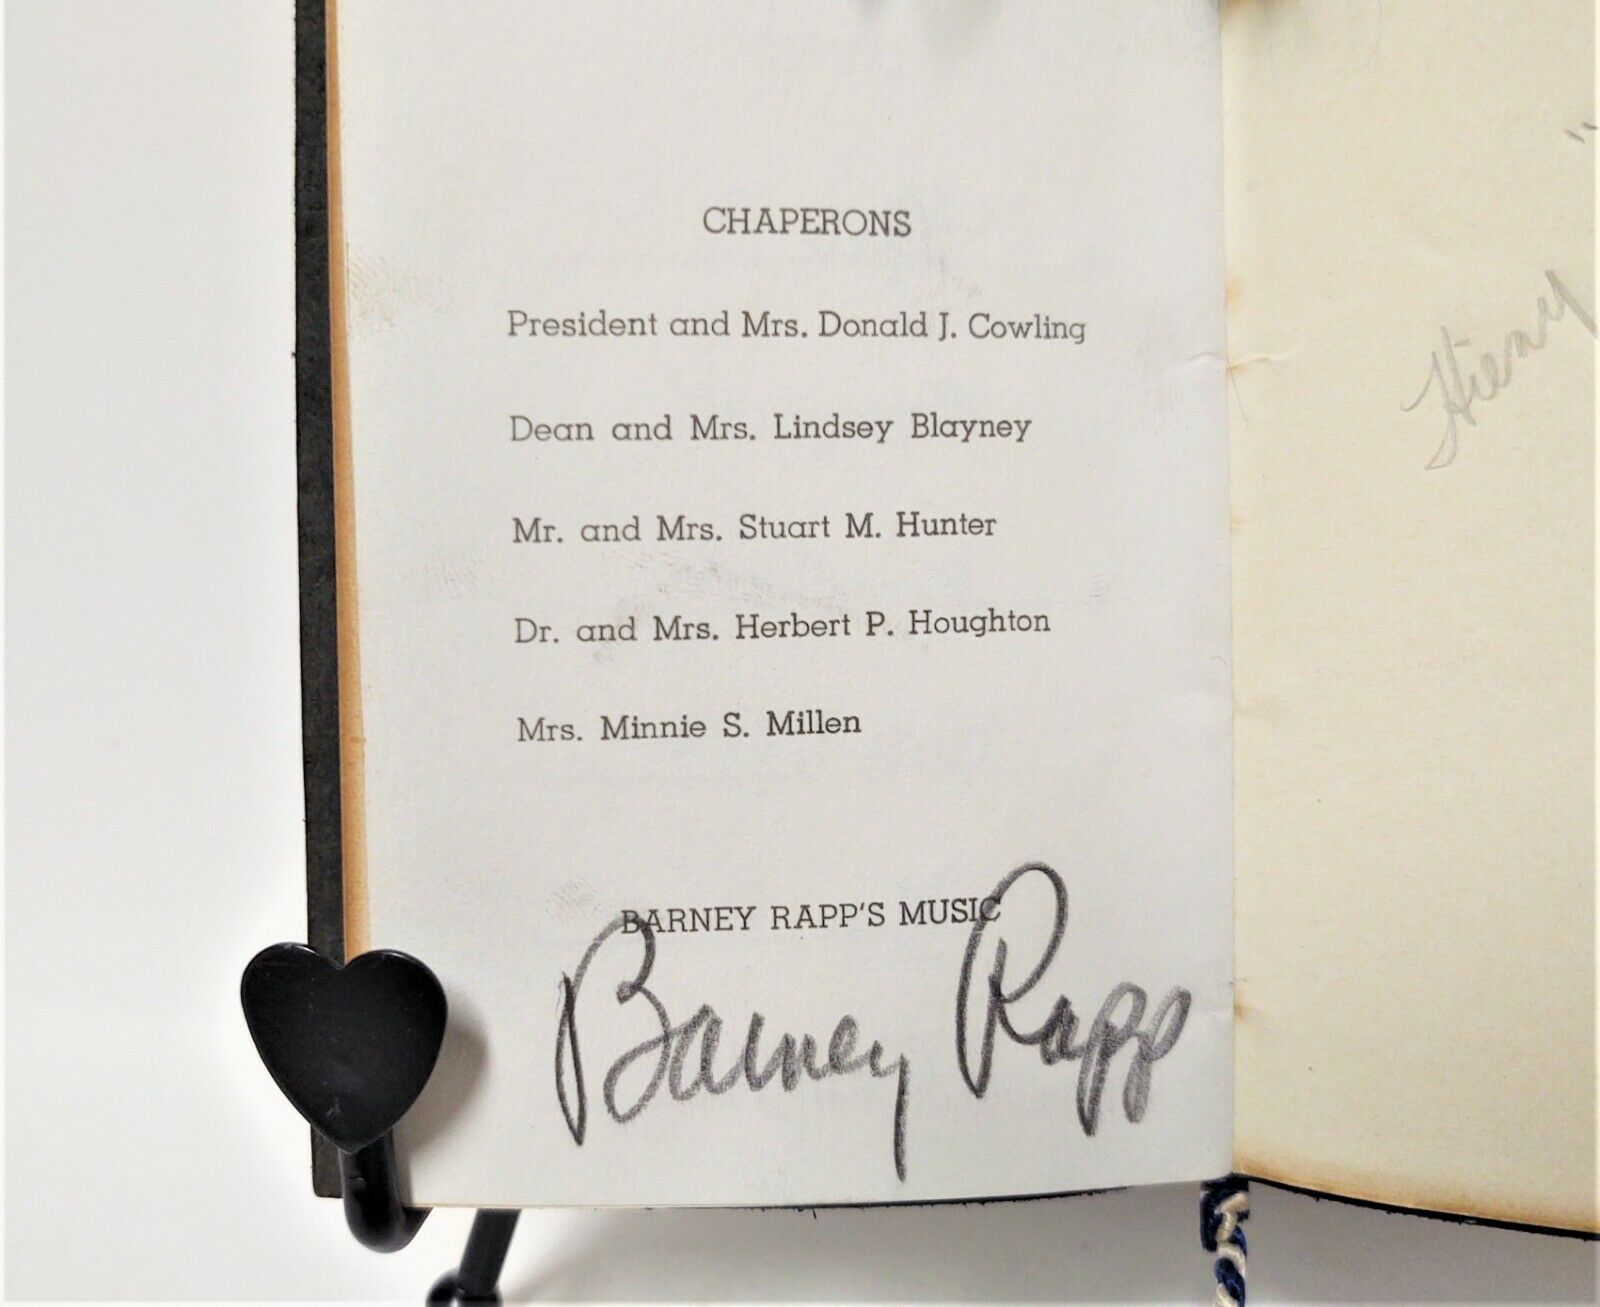 CHAPERONS
President and Mrs. Donald J. Cowling
Dean and Mrs. Lindsey Blayney
Mr. and Mrs. Stuart M. Hunter
Dr. and Mrs. Herbert P. Houghton
Mrs. Minnie S. Millen
BARNEY RAPP'S MUSIC
Barney Rapp